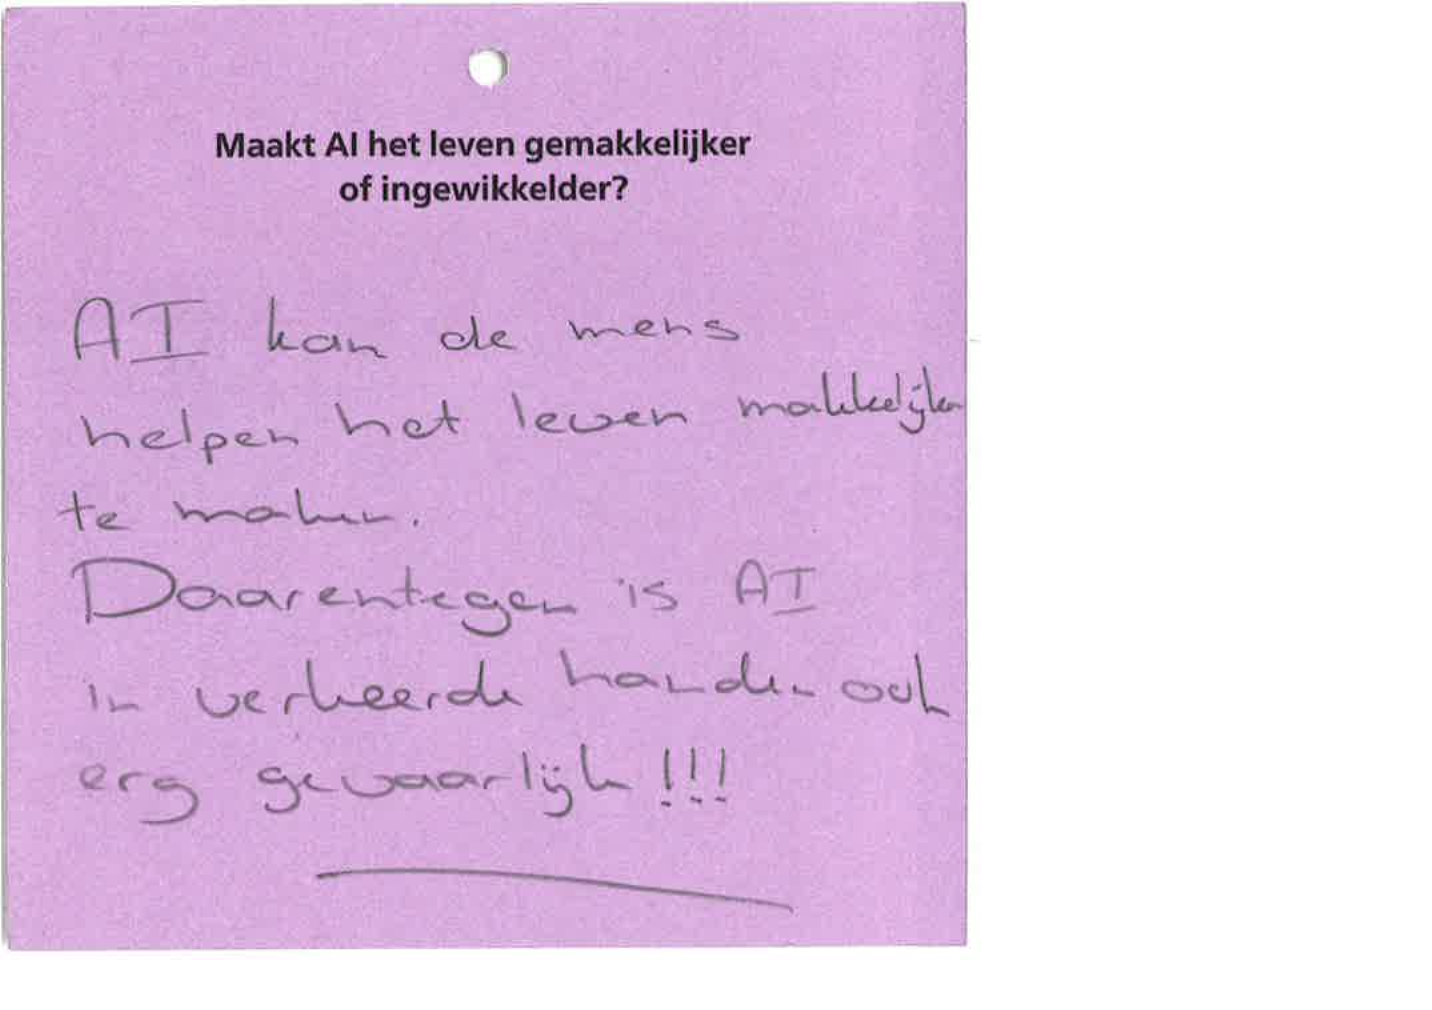 Maakt AI het leven gemakkelijker
of ingewikkelder?
AI kan de mens
helpen het leven makkelijker
te maken.
Daarentegen is AI
in verkeerde handen ook
erg gevaarlijk!!!